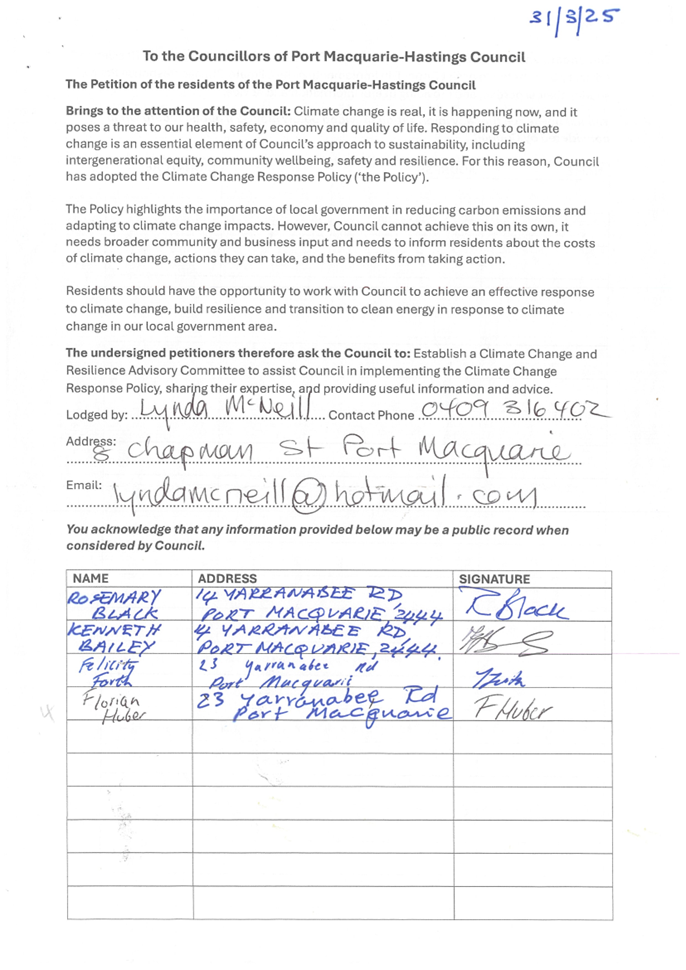 31/3/25
To the Councillors of Port Macquarie-Hastings Council
The Petition of the residents of the Port Macquarie-Hastings Council
Brings to the attention of the Council: Climate change is real, it is happening now, and it
poses a threat to our health, safety, economy and quality of life. Responding to climate
change is an essential element of Council's approach to sustainability, including
intergenerational equity, community wellbeing, safety and resilience. For this reason, Council
has adopted the Climate Change Response Policy ('the Policy').
The Policy highlights the importance of local government in reducing carbon emissions and
adapting to climate change impacts. However, Council cannot achieve this on its own, it
needs broader community and business input and needs to inform residents about the costs
of climate change, actions they can take, and the benefits from taking action.
Residents should have the opportunity to work with Council to achieve an effective response
to climate change, build resilience and transition to clean energy in response to climate
change in our local government area.
The undersigned petitioners therefore ask the Council to: Establish a Climate Change and
Resilience Advisory Committee to assist Council in implementing the Climate Change
Response Policy, sharing their expertise, and providing useful information and advice.
Lodged by: Lynda McNeill Contact Phone 0409 316 402
Address: 8 chapman St Port Macquarie
Email: lyndamcneill@hotmail.com
You acknowledge that any information provided below may be a public record when
considered by Council.
NAME ADDRESS SIGNATURE
ROSEMARY 14 YARRANABEE RD
BLACK PORT MACQUARIE, 2444 R Black
KENNETH 4 YARRANABEE RD,
BAILEY PORT MACQUARIE, 2444.
Felicity 23 Yarranabee Rd
Forth Port Macquarie
Florian 23 Yarranabee Rd
Huber Port Macquarie F Huber
4